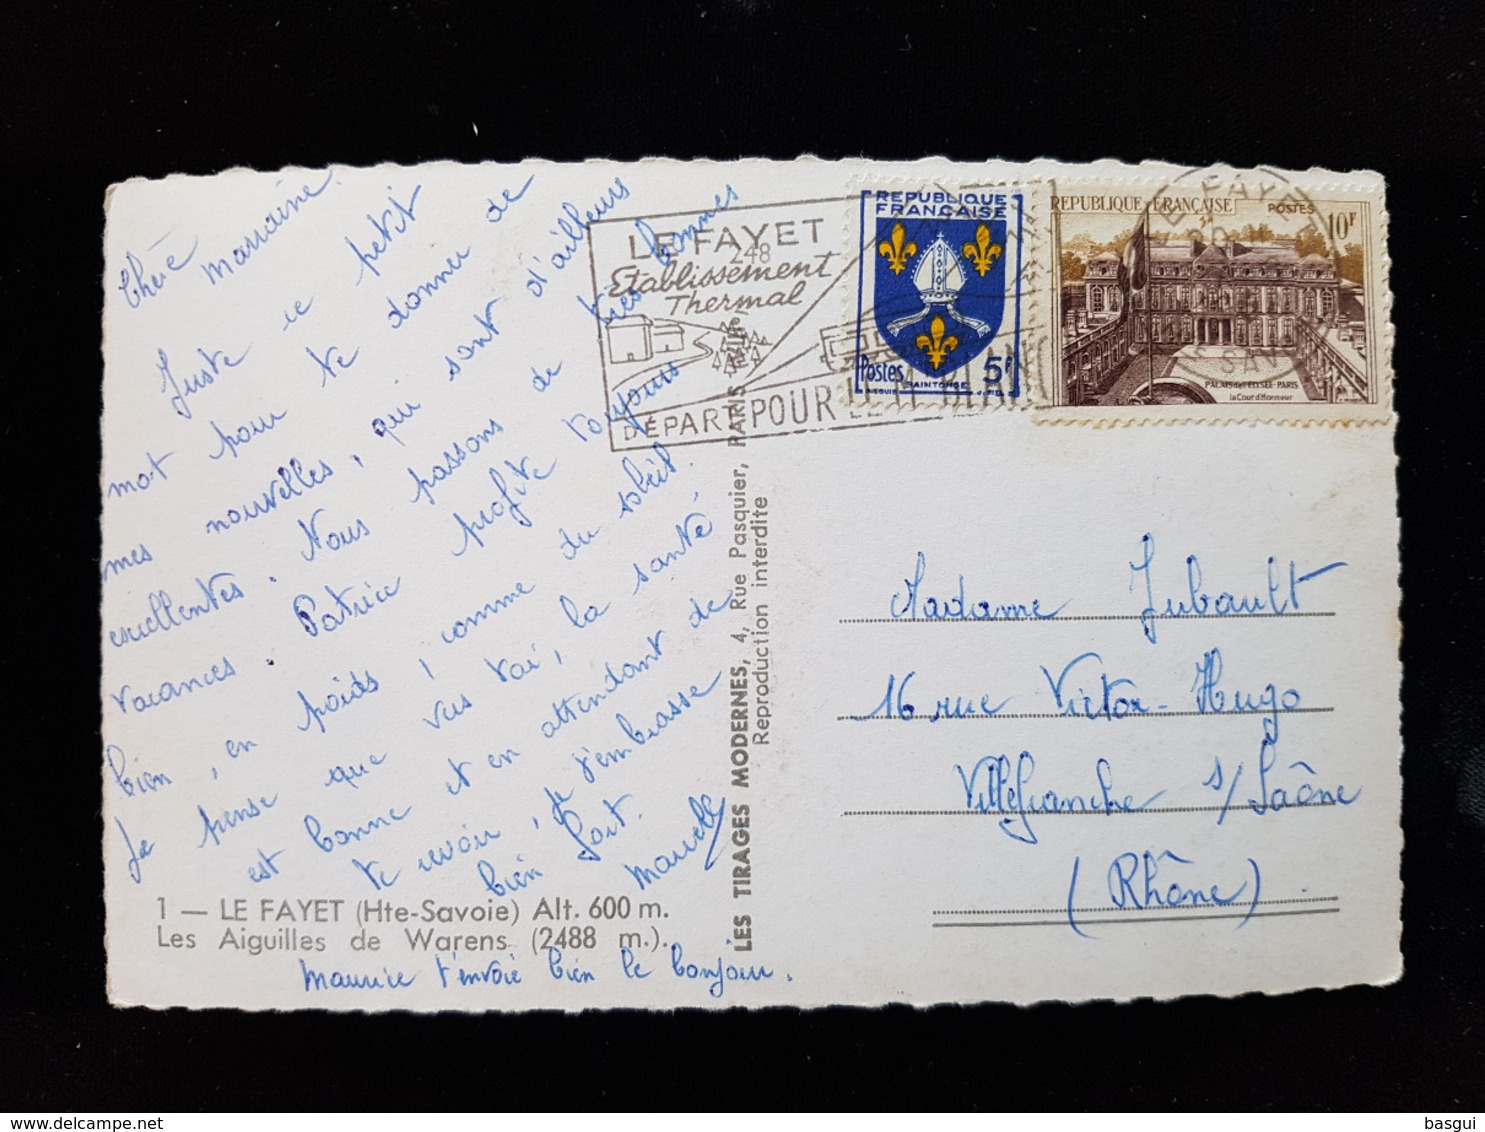 Chère marraine.
Juste ce petit
mot pour te donner de
mes nouvelles, qui sont d'ailleurs
excellentes. Nous passons de très bonnes
vacances. Patrice profite toujours
bien, en poids, comme du soleil.
Je pense que vers toi, la santé
est bonne et en attendant de
te revoir, je t'embrasse
bien fort.
Marcelle
1 — LE FAYET (Hte-Savoie) Alt. 600 m.
Les Aiguilles de Warens (2488 m.).
Maurice t'envoie bien le bonjour.
LES TIRAGES MODERNES, 4, Rue Pasquier, PARIS
Reproduction interdite
LE FAYET
248
Etablissement
Thermal
DÉPART POUR LE
REPUBLIQUE
FRANÇAISE
Postes 5F
SAINTONGE
REPUBLIQUE FRANÇAISE POSTES 10F
LE FAYET
PALAIS de l'ELYSÉE-PARIS
la Cour d'Honneur
Madame Jubault
16 rue Victor-Hugo
Villefranche s/Saône
(Rhône)
basgui
delcampe.net